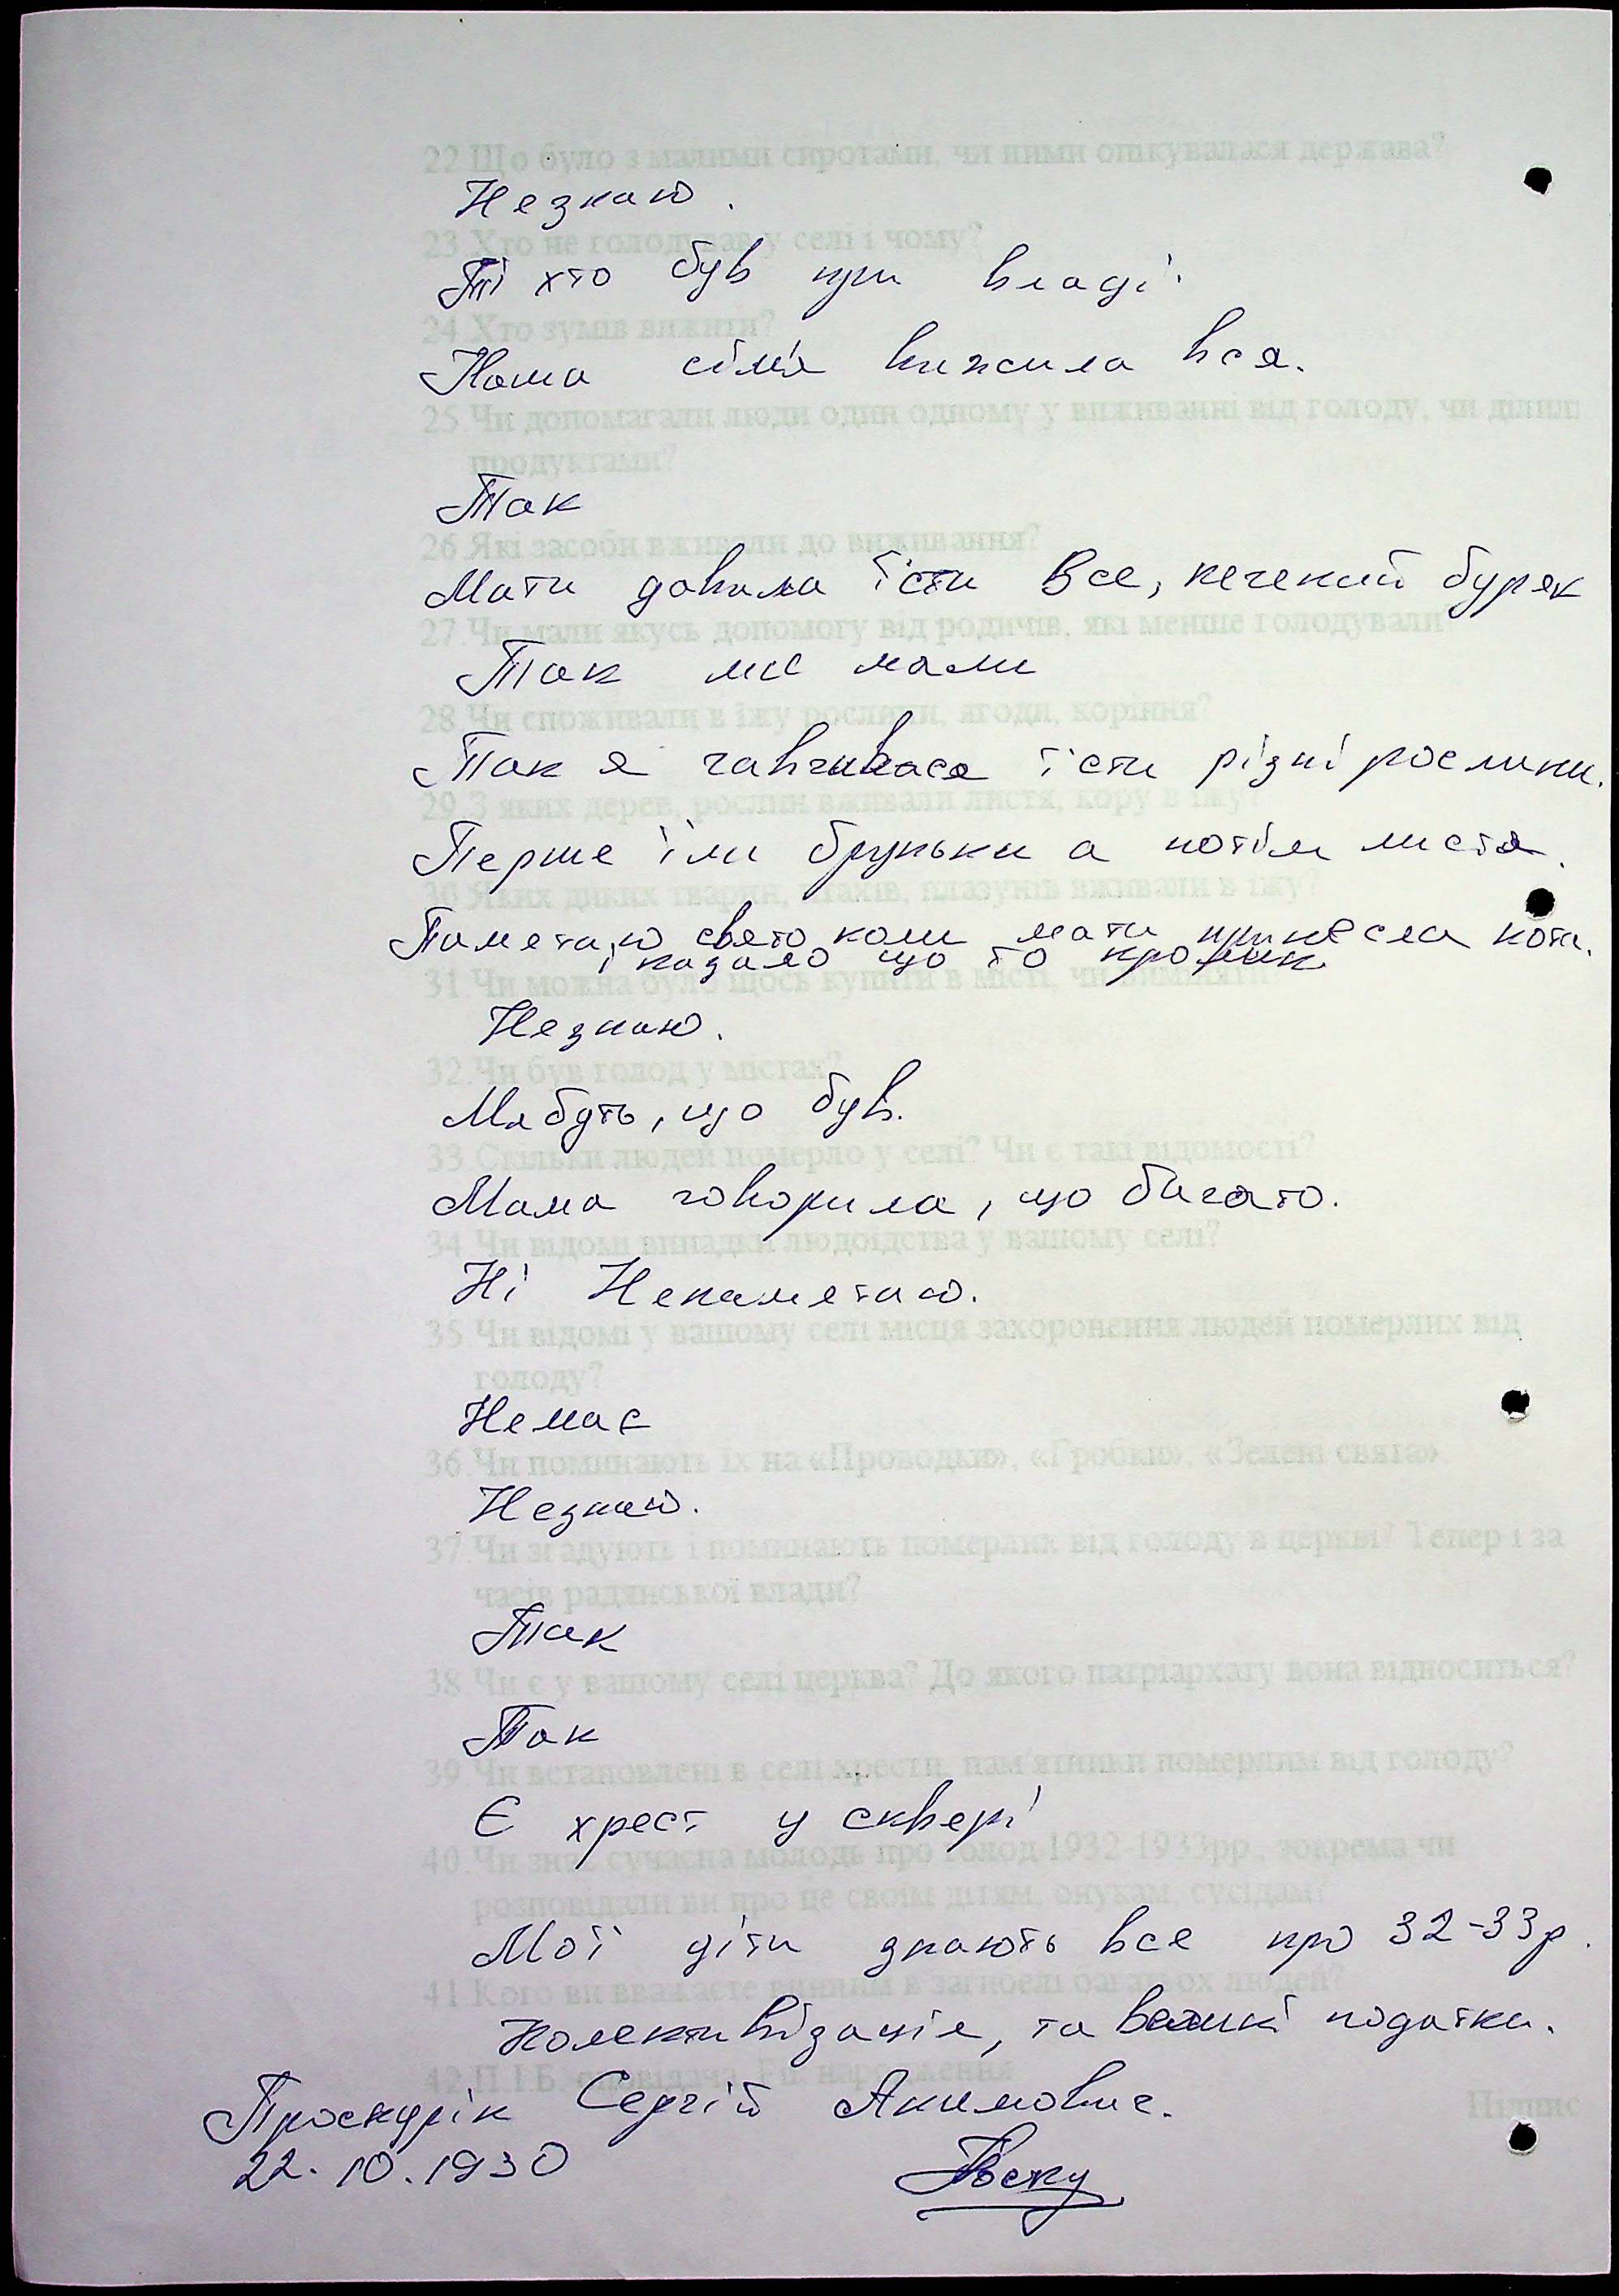 22.Що було з малими сиротами, чи ними опікувалася держава?
Незнаю.
23.Хто не голодував у селі і чому?
Ті хто був при владі.
24.Хто зумів вижити?
Наша сім'я вижила вся.
25.Чи допомагали люди один одному у виживанні від голоду, чи ділили
продуктами?
Так
26.Які засоби вживали до виживання?
Мати давала їсти Все, печений буряк
27.Чи мали якусь допомогу від родичів, які менше голодували
Так ми мали
28.Чи споживали в їжу рослини, ягоди, коріння?
Так я їсти різні рослини.
29.З яких дерев, рослин вживали листя, кору в їжу?
Перше їли бруньки а потім листя.
30.Яких диких тварин, птахів, плазунів вживали в їжу?
Паметаю свято коли мати принесла кота.
і казало що то кролик
31.Чи можна було щось купити в місті, чи виміняти?
Незнаю.
32.Чи був голод у містах?
Мабуть, що був.
33.Скільки людей померло у селі? Чи є такі відомості?
Мама говорила, що багато.
34.Чи відомі випадки людоїдства у вашому селі?
Ні Непаметаю.
35.Чи відомі у вашому селі місця захоронення людей померлих від
голоду?
Немає
36.Чи поминають їх на «Проводки», «Гробки», «Зелені свята».
Незнаю.
37.Чи згадують і поминають померлих від голоду в церкві? Тепер і за
часів радянської влади?
Так
38.Чи є у вашому селі церква? До якого патріархату вона відноситься?
Так
39.Чи встановлені в селі хрести, пам'ятники померлим від голоду?
Є хрест у сквері
40.Чи знає сучасна молодь про голод 1932-1933рр., зокрема чи
розповідали ви про це своїм дітям, онукам, сусідам?
Мої діти знають все про 32-33р.
41.Кого ви вважаєте винним в загибелі багатьох людей?
Колективізація, та великі податки.
42.П.І.Б. оповідача, рік народження
Проскурік Сергій Акимович.
Підпис
22.10.1930